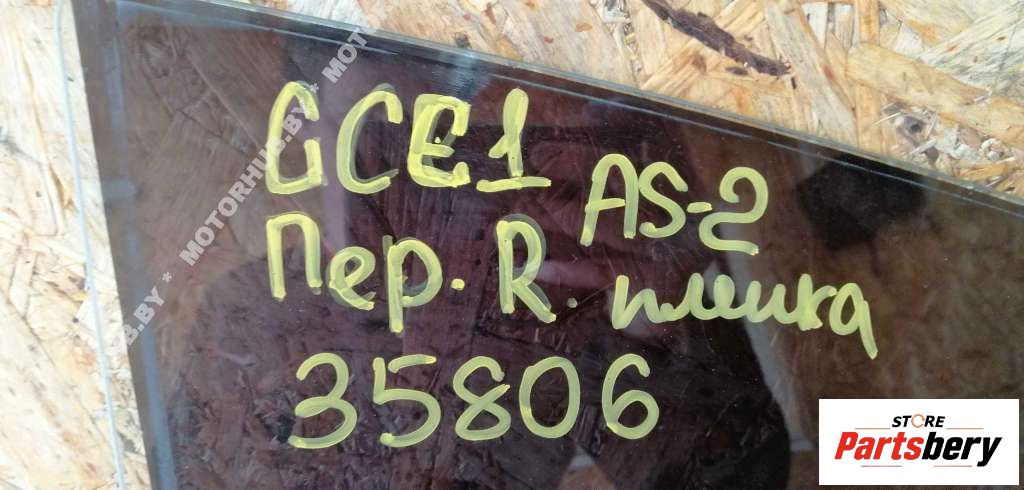 CCE1
AS-2
Пер. R. пленка
35806
MOTORHUB.BY * MOT
B.BY *
STORE
Partsbery